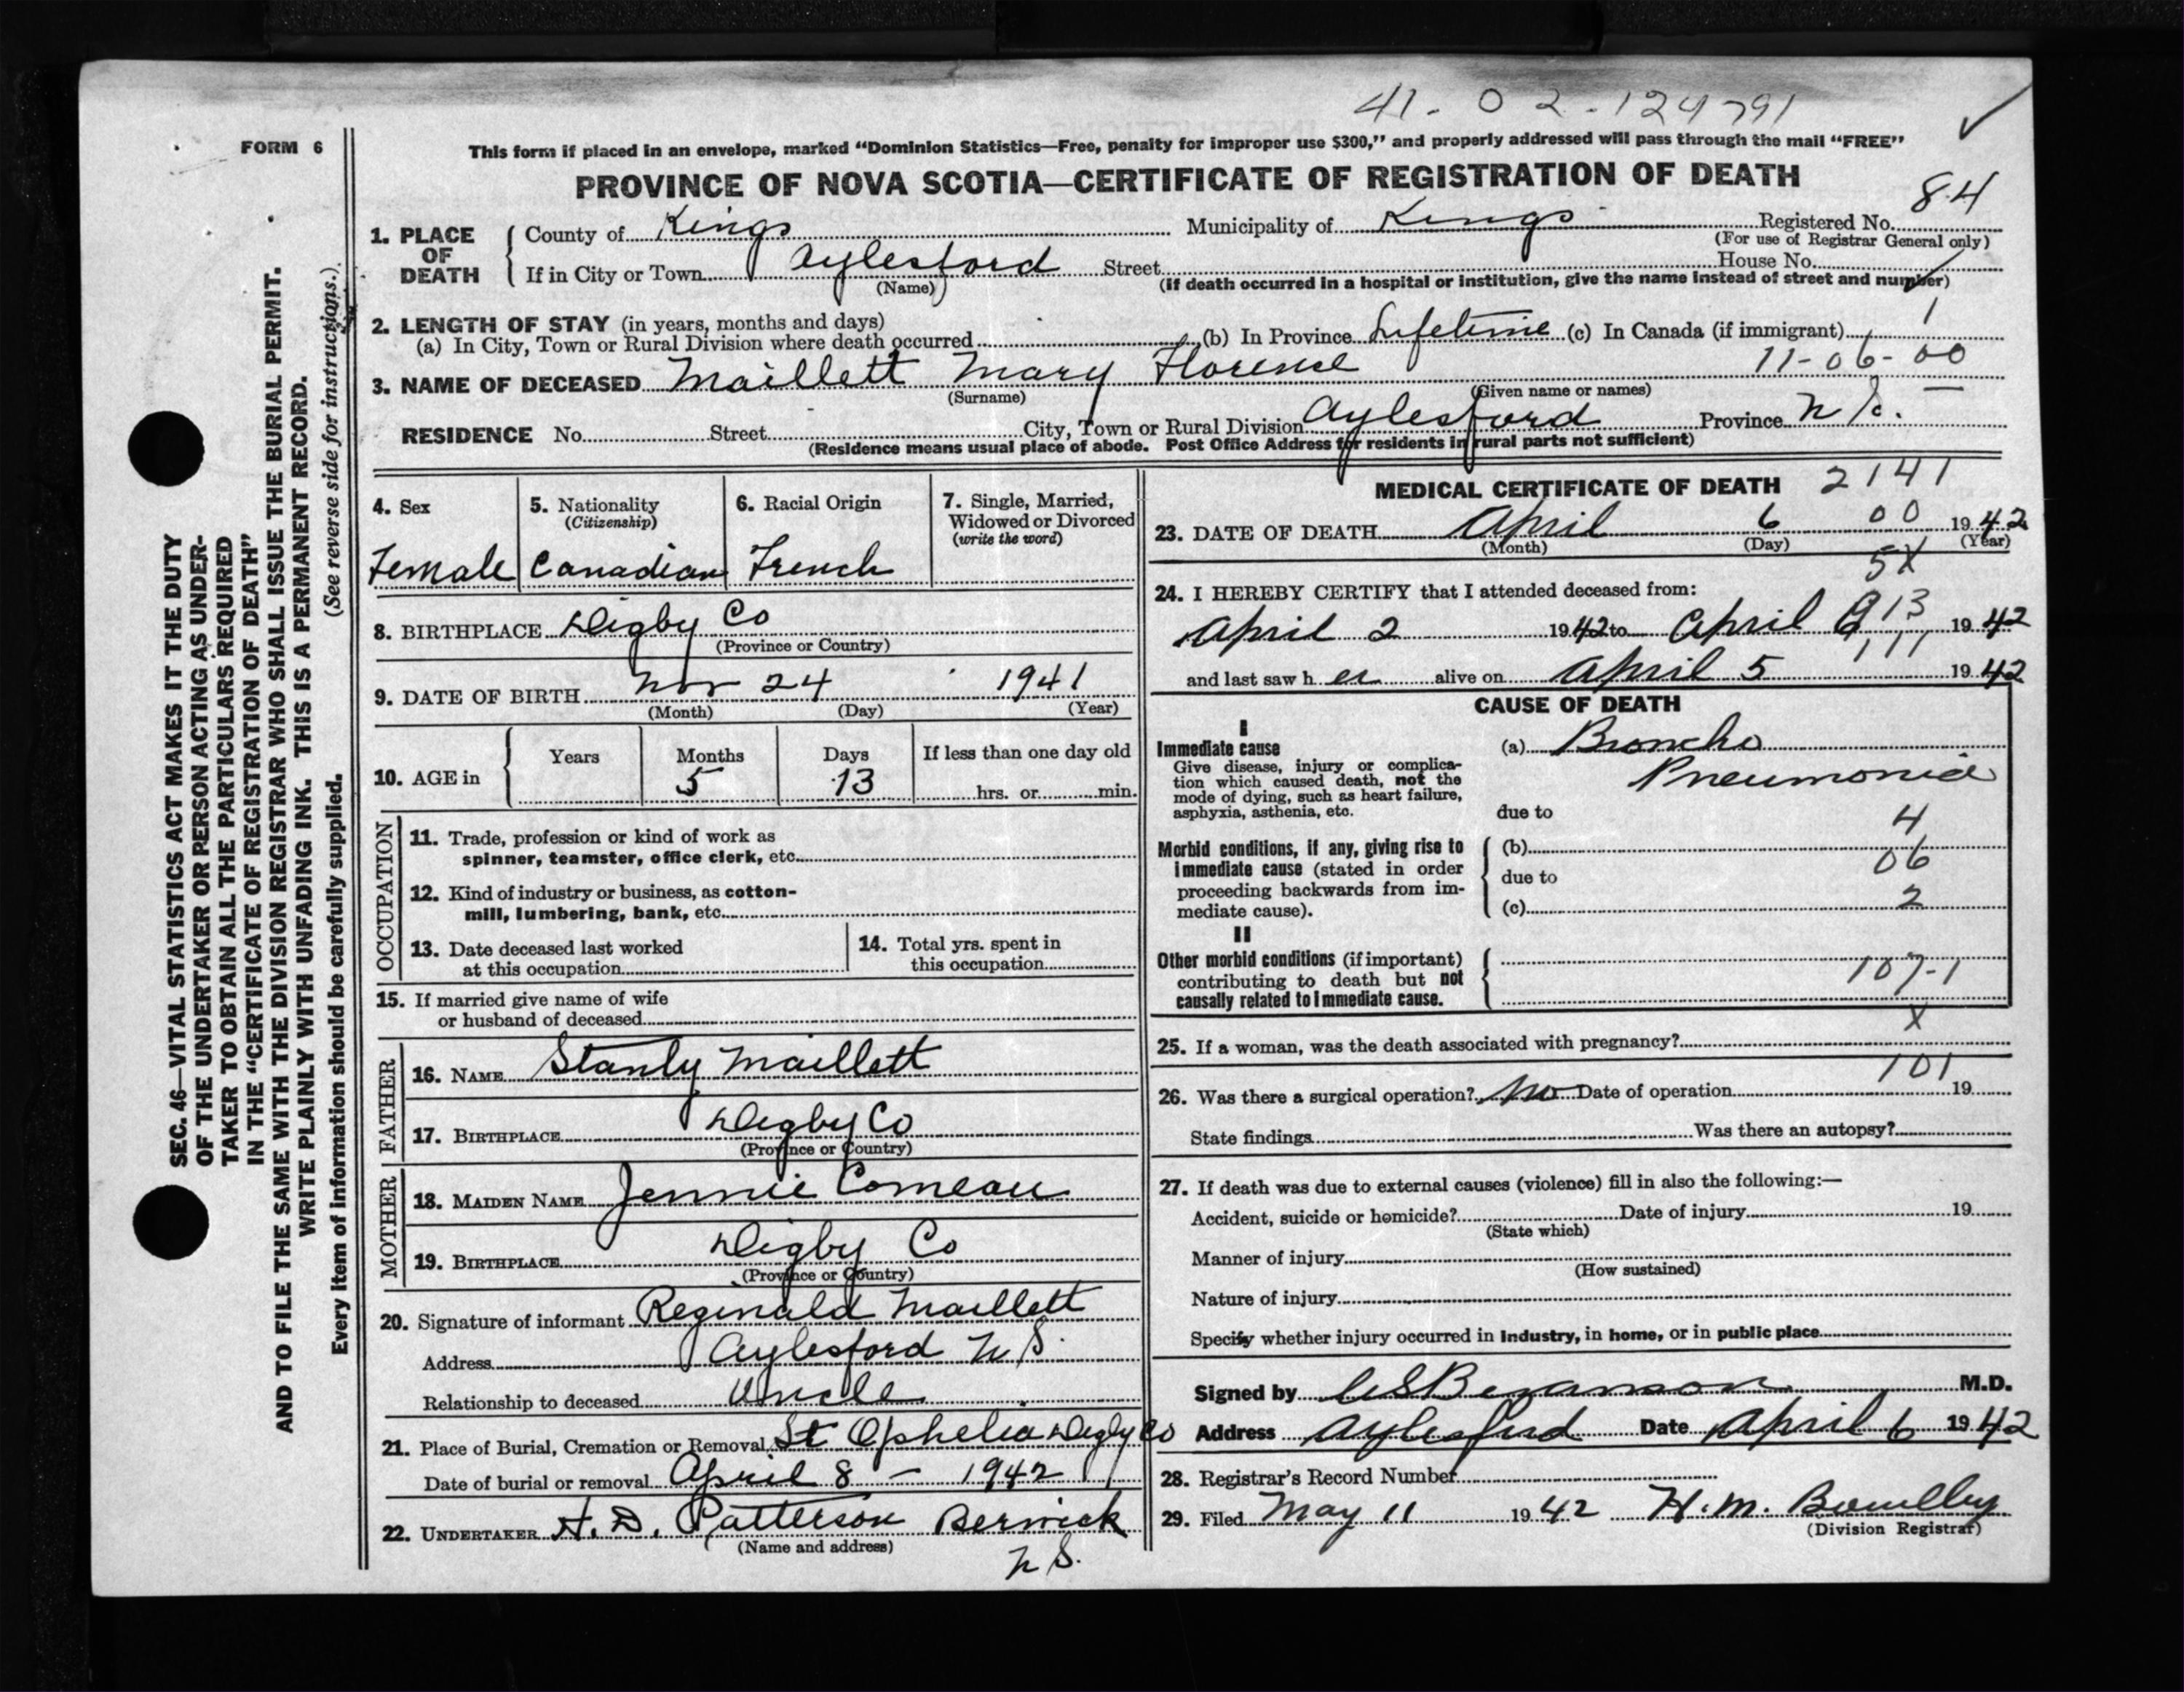 41-02-124791
FORM 6
This form if placed in an envelope, marked “Dominion Statistics—Free, penalty for improper use $300,” and properly addressed will pass through the mail “FREE”
PROVINCE OF NOVA SCOTIA—CERTIFICATE OF REGISTRATION OF DEATH
1. PLACE OF DEATH County of Kings Municipality of Kings Registered No. 84
(For use of Registrar General only)
If in City or Town Aylesford Street House No.
(Name) (If death occurred in a hospital or institution, give the name instead of street and number)
2. LENGTH OF STAY (in years, months and days) 1
(a) In City, Town or Rural Division where death occurred (b) In Province Lifetime (c) In Canada (if immigrant)
11-06-00
3. NAME OF DECEASED Maillett Mary Florence
(Surname) (Given name or names)
RESIDENCE No. Street City, Town or Rural Division Aylesford Province N S.
(Residence means usual place of abode. Post Office Address for residents in rural parts not sufficient)
4. Sex 5. Nationality (Citizenship) 6. Racial Origin 7. Single, Married, Widowed or Divorced (write the word)
Female Canadian French
8. BIRTHPLACE Digby Co
(Province or Country)
9. DATE OF BIRTH Nov 24 1941
(Month) (Day) (Year)
10. AGE in Years Months Days If less than one day old
5 13 hrs. or min.
OCCUPATION
11. Trade, profession or kind of work as
spinner, teamster, office clerk, etc.
12. Kind of industry or business, as cotton-
mill, lumbering, bank, etc.
13. Date deceased last worked
at this occupation
14. Total yrs. spent in
this occupation
15. If married give name of wife
or husband of deceased
FATHER
16. NAME Stanly Maillett
17. BIRTHPLACE Digby Co
(Province or Country)
MOTHER
18. MAIDEN NAME Jennie Comeau
19. BIRTHPLACE Digby Co
(Province or Country)
20. Signature of informant Reginald Maillett
Address Aylesford N S.
Relationship to deceased Uncle
21. Place of Burial, Cremation or Removal St Ophelia Digby Co
Date of burial or removal April 8 - 1942
22. UNDERTAKER H. D. Patterson Berwick
(Name and address) N S.
MEDICAL CERTIFICATE OF DEATH 2141
00
23. DATE OF DEATH April 6 1942
(Month) (Day) (Year)
5X
24. I HEREBY CERTIFY that I attended deceased from:
913
April 2 1942 to April 6 1942
111
and last saw her alive on April 5 1942
CAUSE OF DEATH
I
Immediate cause
Give disease, injury or complica-
tion which caused death, not the
mode of dying, such as heart failure,
asphyxia, asthenia, etc.
(a) Broncho
Pneumonia
due to
4
Morbid conditions, if any, giving rise to
immediate cause (stated in order
proceeding backwards from im-
mediate cause).
(b)
06
due to
2
(c)
II
Other morbid conditions (if important)
contributing to death but not
causally related to immediate cause.
107-1
X
25. If a woman, was the death associated with pregnancy?
101
26. Was there a surgical operation? No Date of operation 19
State findings Was there an autopsy?
27. If death was due to external causes (violence) fill in also the following:—
Accident, suicide or homicide? Date of injury 19
(State which)
Manner of injury
(How sustained)
Nature of injury
Specify whether injury occurred in industry, in home, or in public place
Signed by M.D.
Address Aylesford Date April 6 1942
28. Registrar's Record Number
29. Filed May 11 1942 H. M.
(Division Registrar)
SEC. 46—VITAL STATISTICS ACT MAKES IT THE DUTY
OF THE UNDERTAKER OR PERSON ACTING AS UNDER-
TAKER TO OBTAIN ALL THE PARTICULARS REQUIRED
IN THE “CERTIFICATE OF REGISTRATION OF DEATH”
AND TO FILE THE SAME WITH THE DIVISION REGISTRAR WHO SHALL ISSUE THE BURIAL PERMIT.
WRITE PLAINLY WITH UNFADING INK. THIS IS A PERMANENT RECORD.
Every item of information should be carefully supplied. (See reverse side for instructions.)